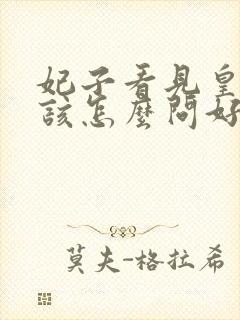 妃子看見皇
該怎麼問好
莫夫-格拉希